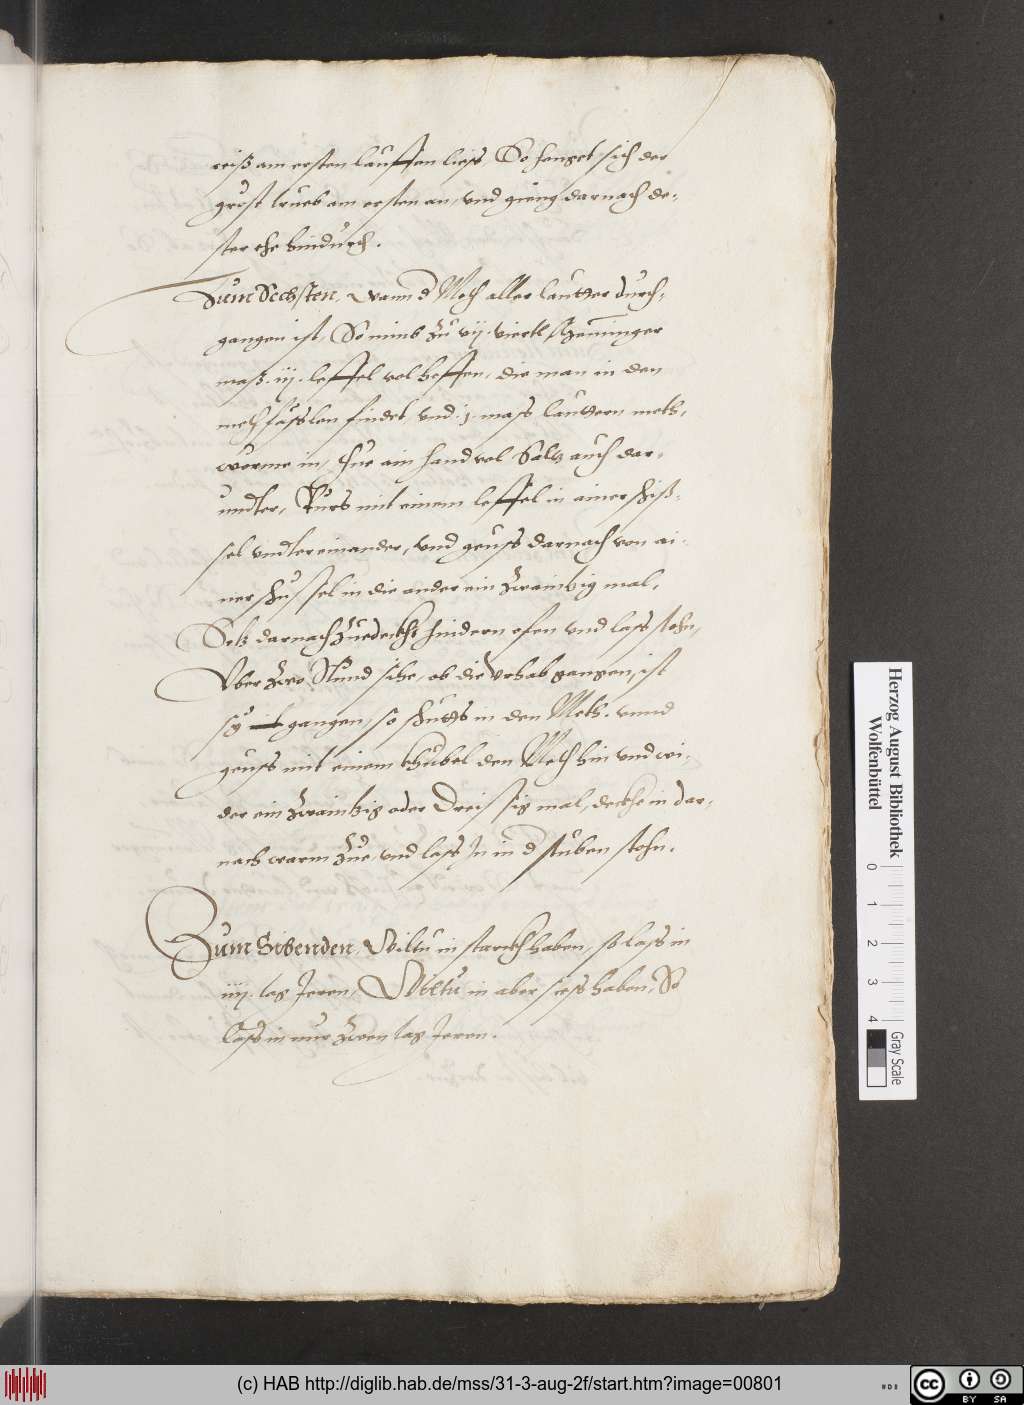 weiß am ersten lauffen liess, So henget sich der
gröst trueb am ersten an, vnd gieng darnach de-
ster ehe hindurch.
Zum Sechsten, Wann d Meth aller lautter durch-
gangen ist, So nimb zu vij. viertl
maß. iij. leffel vol heffen, die man in den
meth fässlen findet vnd .j. mass lauttern meth,
wörme in, thue ain hand vol Saltz auch dar-
undter, Rürs mit einem leffel in ainer schiß-
sel vndtereinander, vnd geuss darnach von ai-
ner schüssel in die ander ein zwaintzig mal,
Setz darnach zuedeckht hindern ofen vnd lass stehn,
Vber zwo Stund sihe, ob die vrhab gangen, ist
sÿ gangen, so schütts in den Meth. vnnd
geuss mit einem khübel den Meth hin vnd wi-
der ein zwaintzig oder Dreissig mal, deckhe in dar-
nach warm zue, vnd lass In in d stuben stehn.
Zum Sibenden, Wiltu in starckh haben, so lass in
iiij. tag Jeren, Wiltu in aber siess haben, So
lass in nur zwen tag Jeren.
Herzog August Bibliothek
Wolfenbüttel
0 1 2 3 4
Gray Scale
(c) HAB http://diglib.hab.de/mss/31-3-aug-2f/start.htm?image=00801
cc BY SA